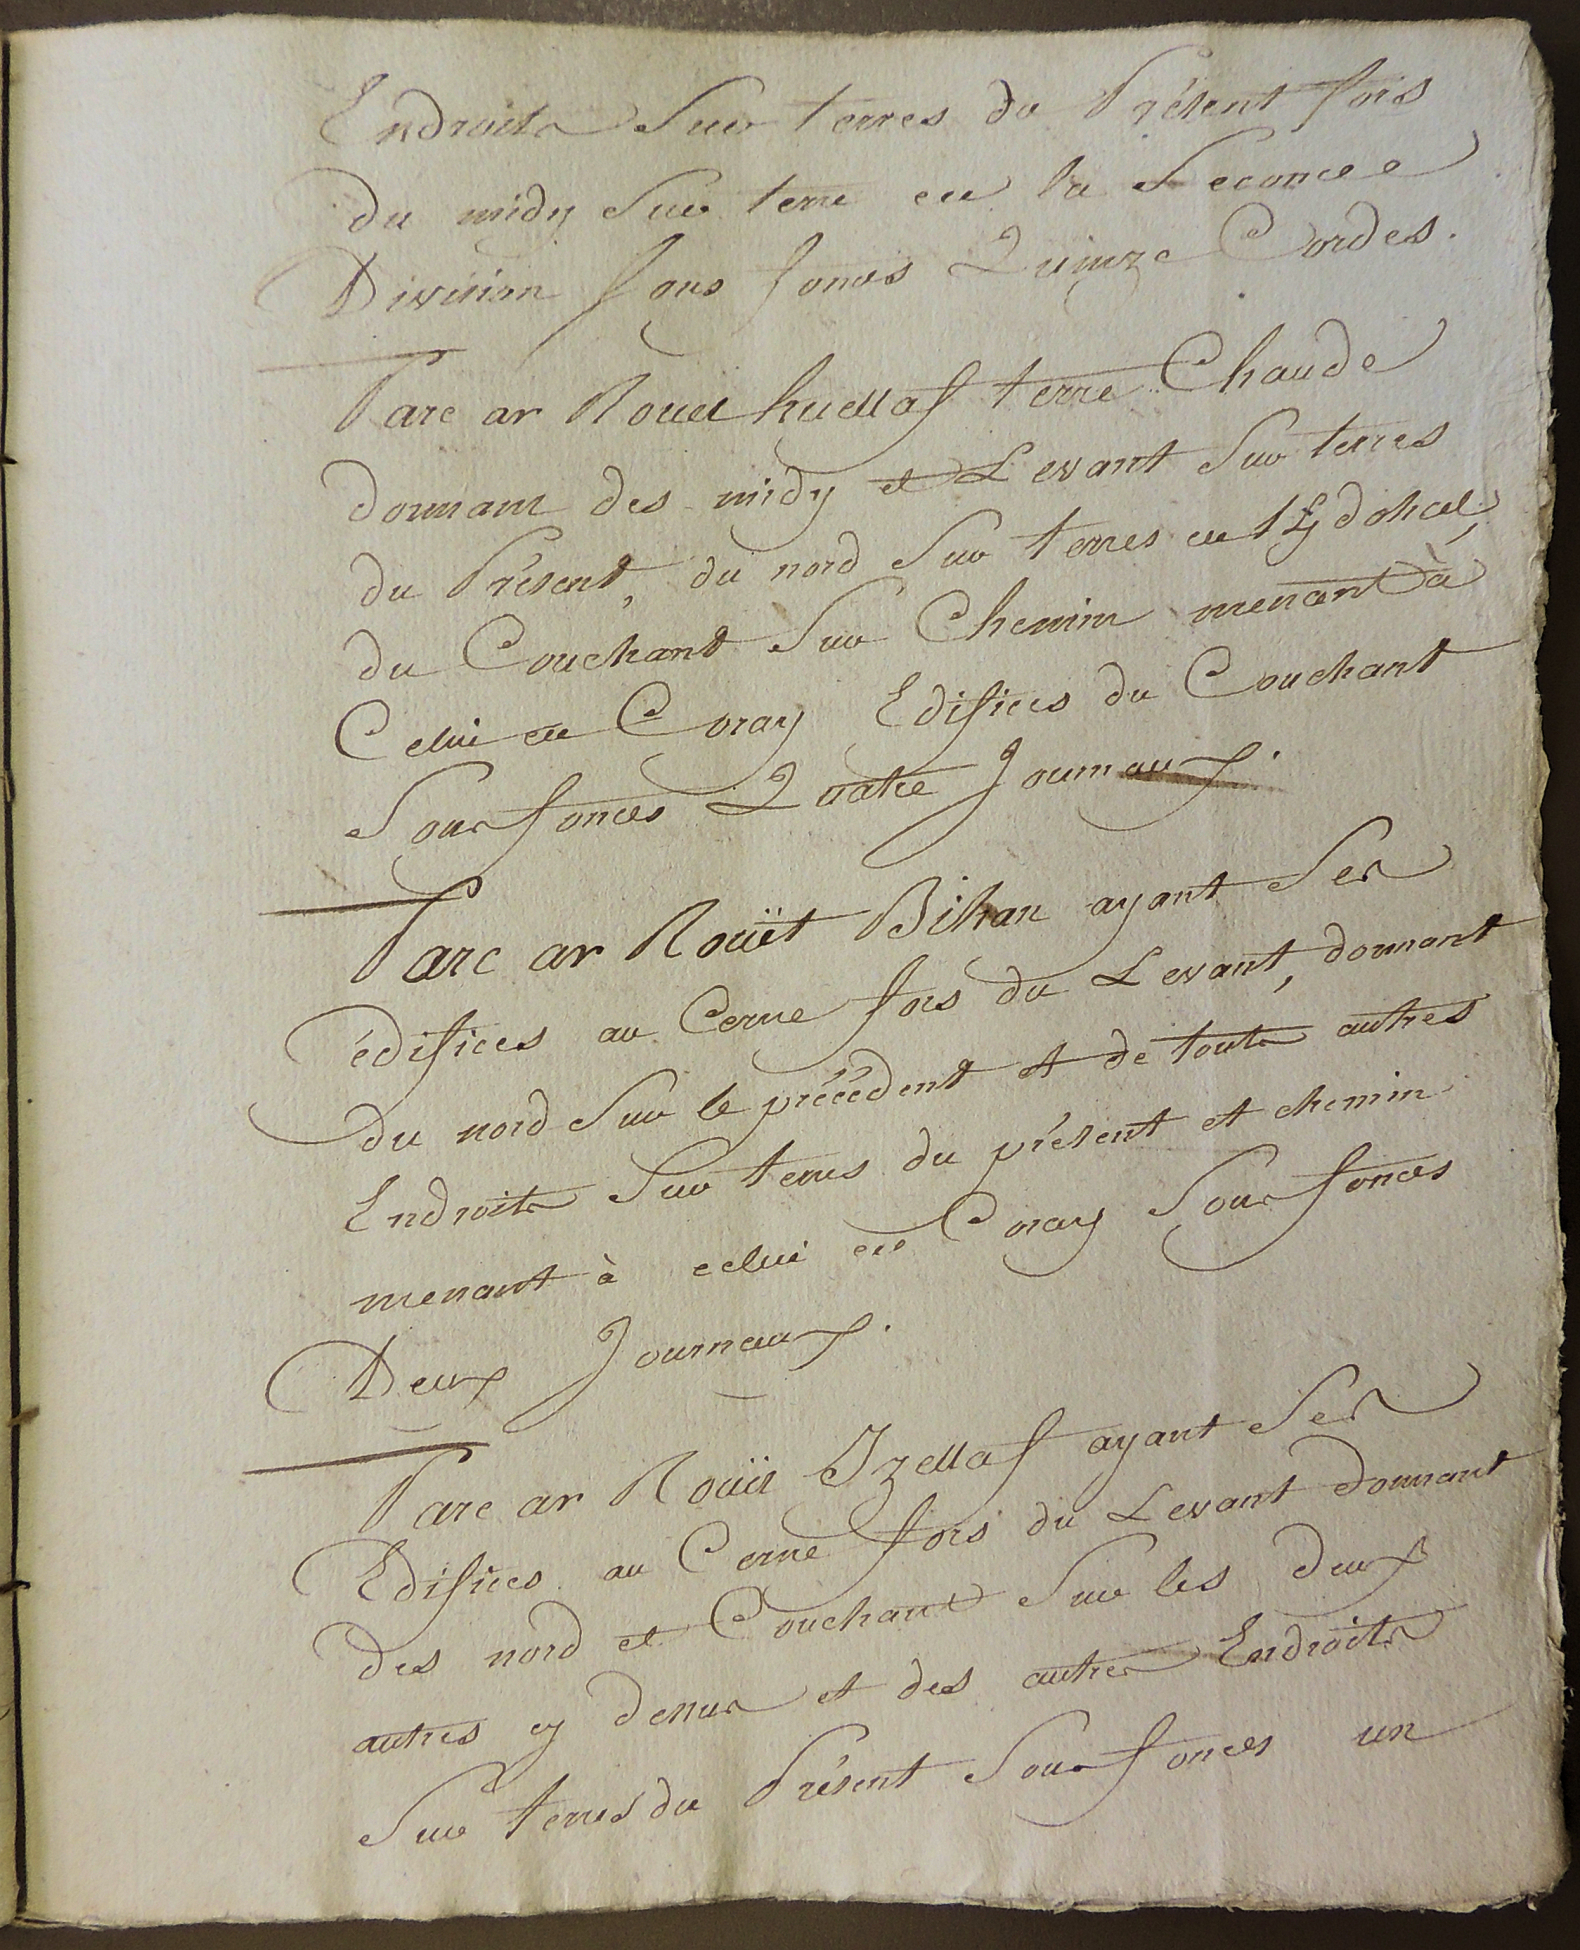 Endroits Sur terres du Présent fors
du midy Sur terre de la Seconde
Division Sous fonds Quinze Cordes.
Parc ar Rouet huellaf terre Chaude
donnant des midy et Levant Sur terres
du Présent, du nord Sur terres de
du Couchant Sur Chemin menant à
Celui de Coray Edifices du Couchant
Sous fonds Quatre Journaux.
Parc ar Rouët Bihan ayant Ses
édifices au Cerne fors du Levant, donnant
du nord Sur le précédent et de touts autres
Endroits Sur terres du présent et chemin
menant à celui de Coray Sous fonds
Deux Journaux.
Parc ar Rouët Izellaf ayant Ses
Edifices au Cerne fors du Levant donnant
des nord et Couchant Sur les deux
autres cy dessus et des autres Endroits
Sur terres du Présent Sous fonds un